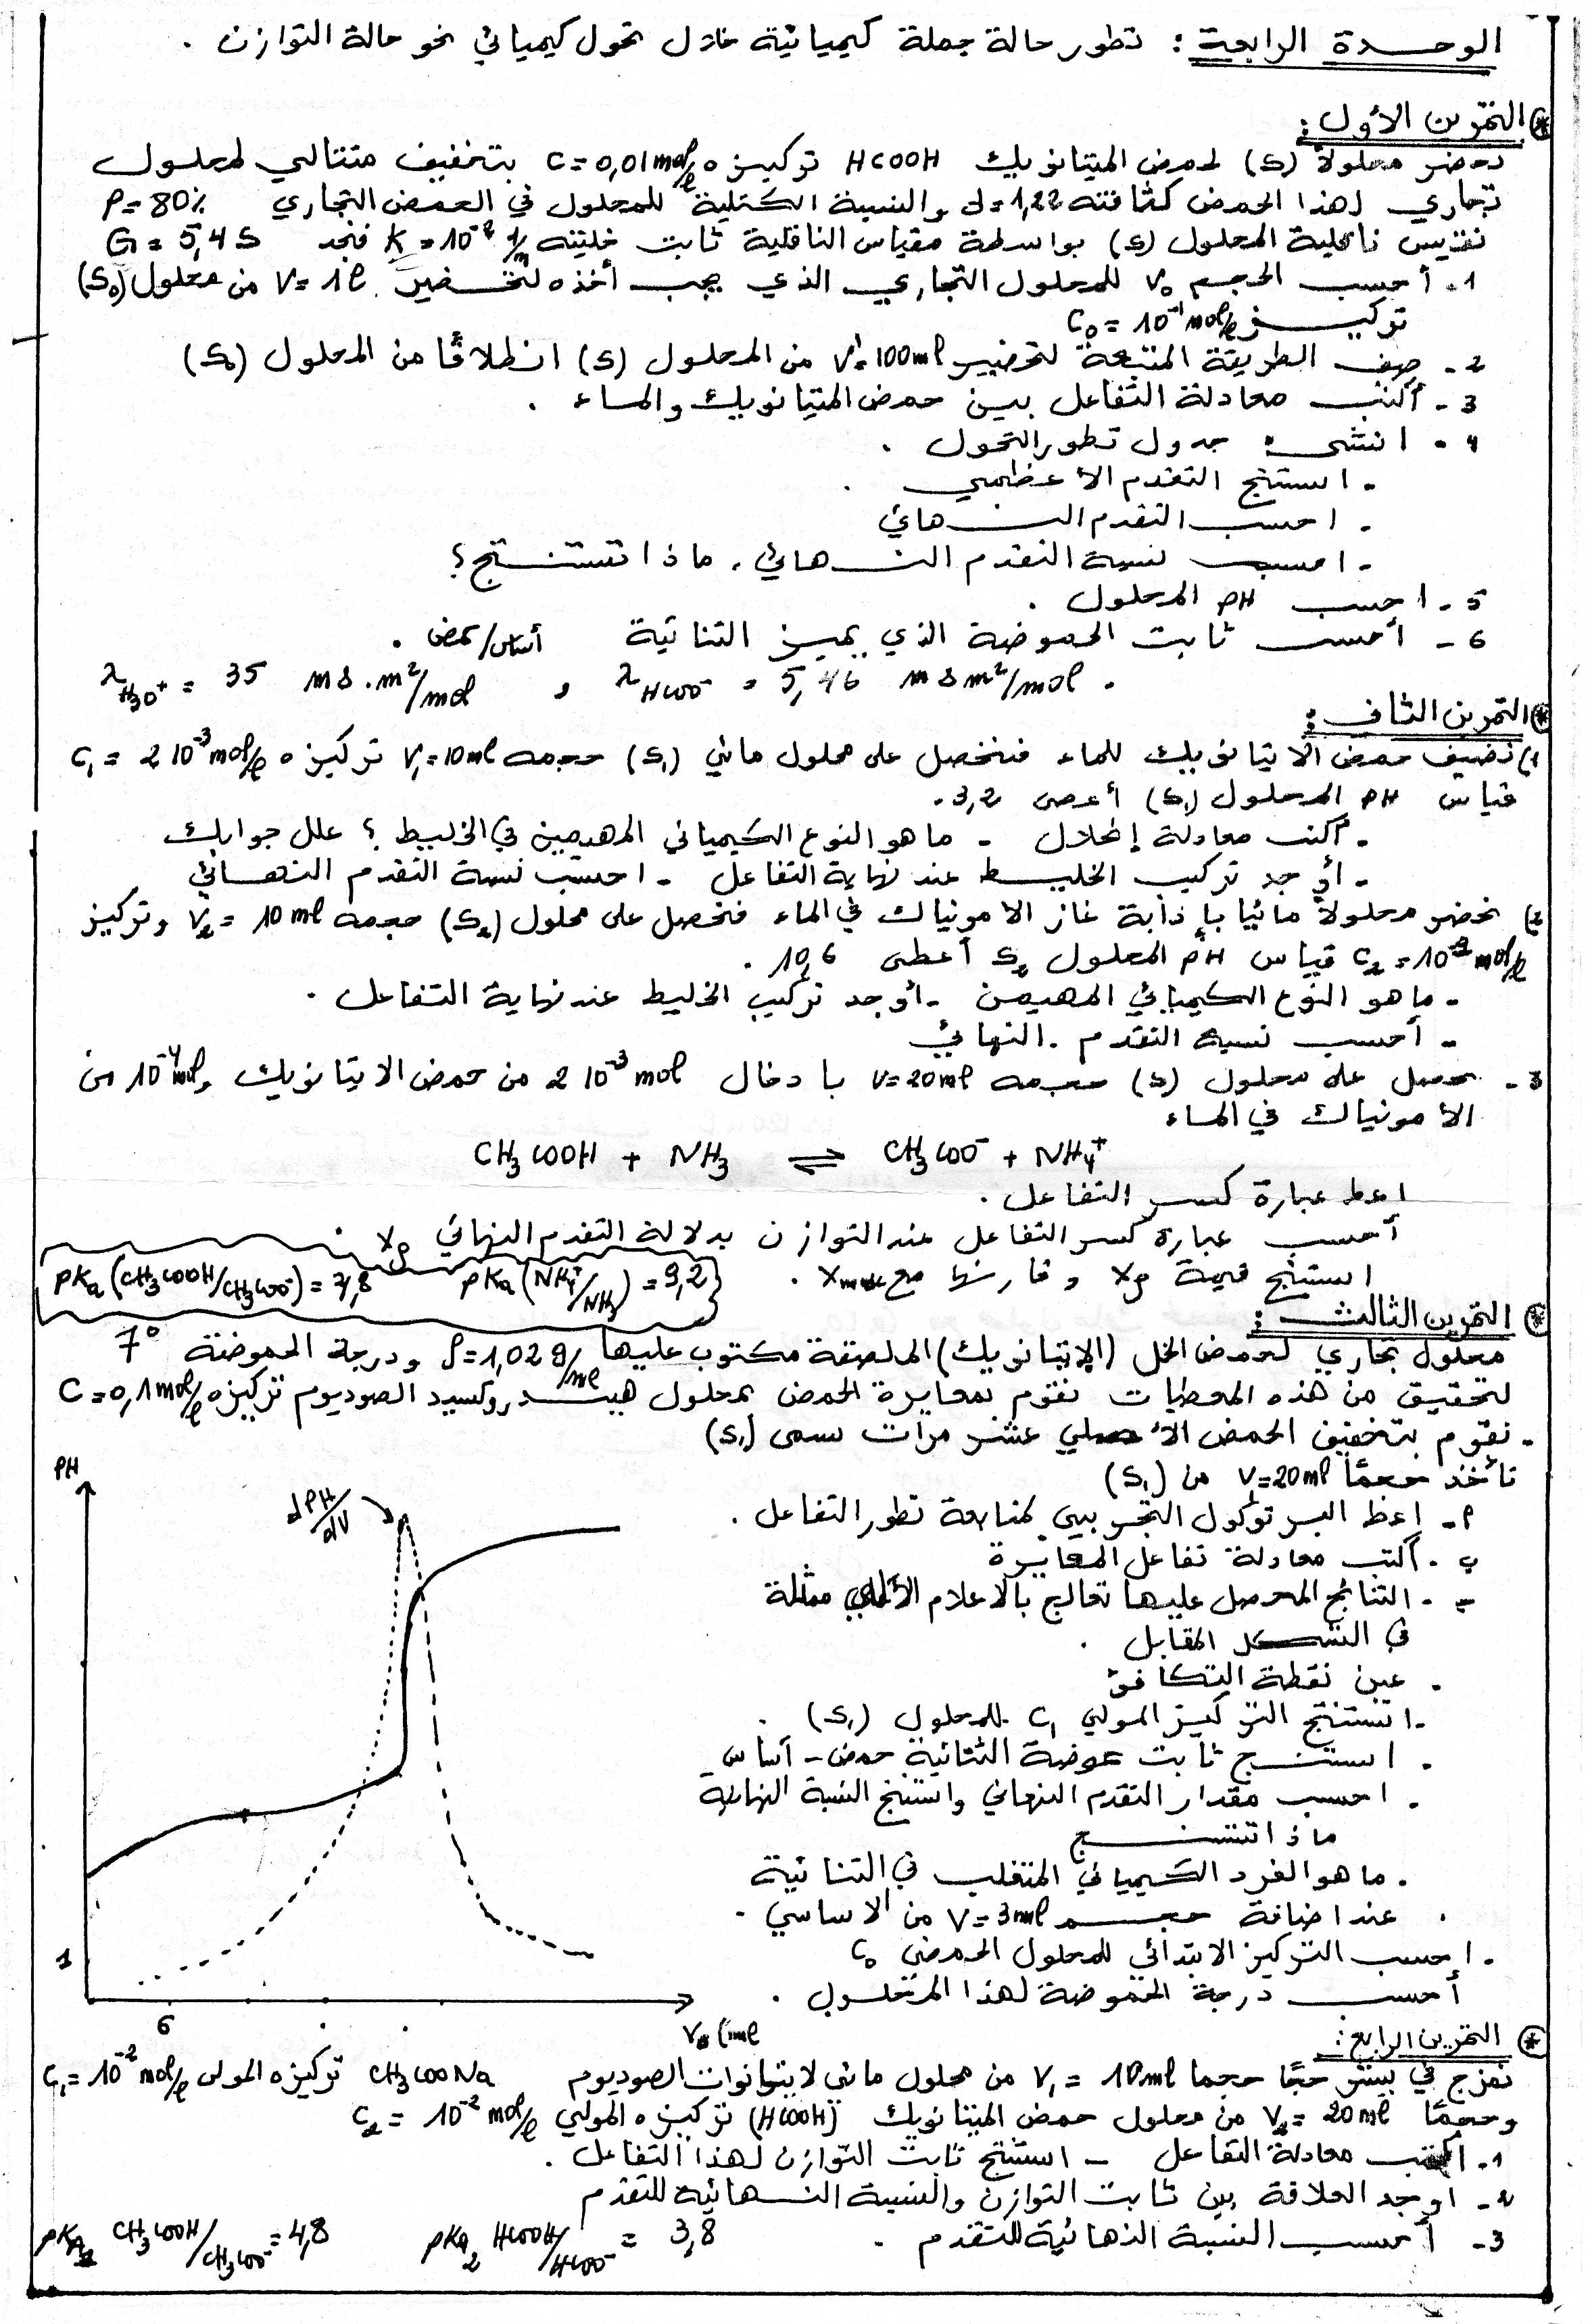 الوحدة الرابعة : تطور حالة جملة كيميائية خلال تحول كيميائي نحو حالة التوازن .
* التمرين الأول :
نحضر محلولاً (S) لحمض الميثانويك HCOOH تركيزه C = 0,01 mol/l بتخفيف متتالي لمحلول
تجاري لهذا الحمض كثافته d = 1,22 والنسبة الكتلية للمحلول في الحمض التجاري P = 80%
نقيس ناقلية المحلول (S) بواسطة مقياس الناقلية ثابت خليته K = 10⁻² 1/m فنجد G = 5,4 S
1 - أحسب الحجم V₀ للمحلول التجاري الذي يجب أخذه لتحضير V = 1l من محلول (S₀)
تركيزه C₀ = 10⁻¹ mol/l
2 - صف الطريقة المتبعة لتحضير V' = 100ml من المحلول (S) انطلاقًا من المحلول (S₀)
3 - أكتب معادلة التفاعل بين حمض الميثانويك والماء .
4 - انشىء جدول تطور التحول .
- استنتج التقدم الأعظمي .
- احسب التقدم النهائي
- احسب نسبة التقدم النهائي . ماذا تستنتج ؟
5 - احسب PH المحلول .
6 - أحسب ثابت الحموضة الذي يميز الثنائية أساس/حمض .
λH₃O⁺ = 35 mS.m²/mol , λHCOO⁻ = 5,46 mS m²/mol .
* التمرين الثاني :
1) نضيف حمض الايثانويك للماء فنتحصل على محلول مائي (S₁) حجمه V₁ = 10ml تركيزه C₁ = 2 10⁻³ mol/l
قياس PH المحلول (S₁) أعطى 3,2 .
- أكتب معادلة إنحلال - ما هو النوع الكيميائي المهيمن في الخليط ؟ علل جوابك
- أوجد تركيب الخليط عند نهاية التفاعل - احسب نسبة التقدم النهائي
2) نحضر محلولاً مائيا بإذابة غاز الامونياك في الماء فنحصل على محلول (S₂) حجمه V₂ = 10 ml وتركيز
C₂ = mol/l قياس PH المحلول S₂ أعطى 10,6 .
- ما هو النوع الكيميائي المهيمن - أوجد تركيب الخليط عند نهاية التفاعل .
- أحسب نسبة التقدم النهائي
3 - نحصل على محلول (S) حجمه V = 20ml بادخال 2 10⁻³ mol من حمض الايثانويك و 10⁻⁴ mol من
الأمونياك في الماء
CH₃COOH + NH₃ ⇌ CH₃COO⁻ + NH₄⁺
اعط عبارة كسر التفاعل .
أحسب عبارة كسر التفاعل عند التوازن بدلالة التقدم النهائي xf .
استنتج قيمة xf وقارنها مع xmax .
pKa (CH₃COOH/CH₃COO⁻) = 4,8 pKa (NH₄⁺/NH₃) = 9,2
* التمرين الثالث :
محلول تجاري لحمض الخل (الإيثانويك) الملصقة مكتوب عليها ρ = 1,02 g/ml ودرجة الحموضة 7°
لتحقيق من هذه المعطيات نقوم بمعايرة الحمض بمحلول هيدروكسيد الصوديوم تركيزه C = 0,1 mol/l
- نقوم بتخفيف الحمض الأصلي عشر مرات سمى (S₁)
نأخذ حجمًا V = 20ml من (S₁)
PH
dPH/dV
1
6
V (ml
أ - اعط البروتوكول التجريبي لمتابعة تطور التفاعل .
ب - أكتب معادلة تفاعل المعايرة
ج - النتائج المحصل عليها تعالج بالاعلام الألي ممثلة
في الشكل المقابل .
. عين نقطة التكافؤ
- استنتج التركيز المولي C₁ للمحلول (S₁) .
. استنتج ثابت حموضة الثنائية حمض - أساس
. احسب مقدار التقدم النهائي واستنتج النسبة النهائية
ماذا تستنتج
. ما هو الفرد الكيميائي المتغلب في الثنائية
. عند اضافة حجم V = 3ml من الاساسي .
- احسب التركيز الابتدائي للمحلول الحمضي C₀
أحسب درجة الحموضة لهذا المحلول .
* التمرين الرابع :
نمزج في بيشر حجما V₁ = 10ml من محلول مائي لايثانوات الصوديوم CH₃COONa تركيزه المولي C₁ = 10⁻² mol/l
وحجمًا V₂ = 20ml من محلول حمض الميثانويك (HCOOH) تركيزه المولي C₂ = 10⁻² mol/l
1 - اكتب معادلة التفاعل - استنتج ثابت التوازن لهذا التفاعل .
2 - اوجد العلاقة بين ثابت التوازن والنسبة النهائية للتقدم
3 - أحسب النسبة النهائية للتقدم . pKa₂ HCOOH/HCOO⁻ = 3,8 CH₃COOH/CH₃COO⁻ = 4,8